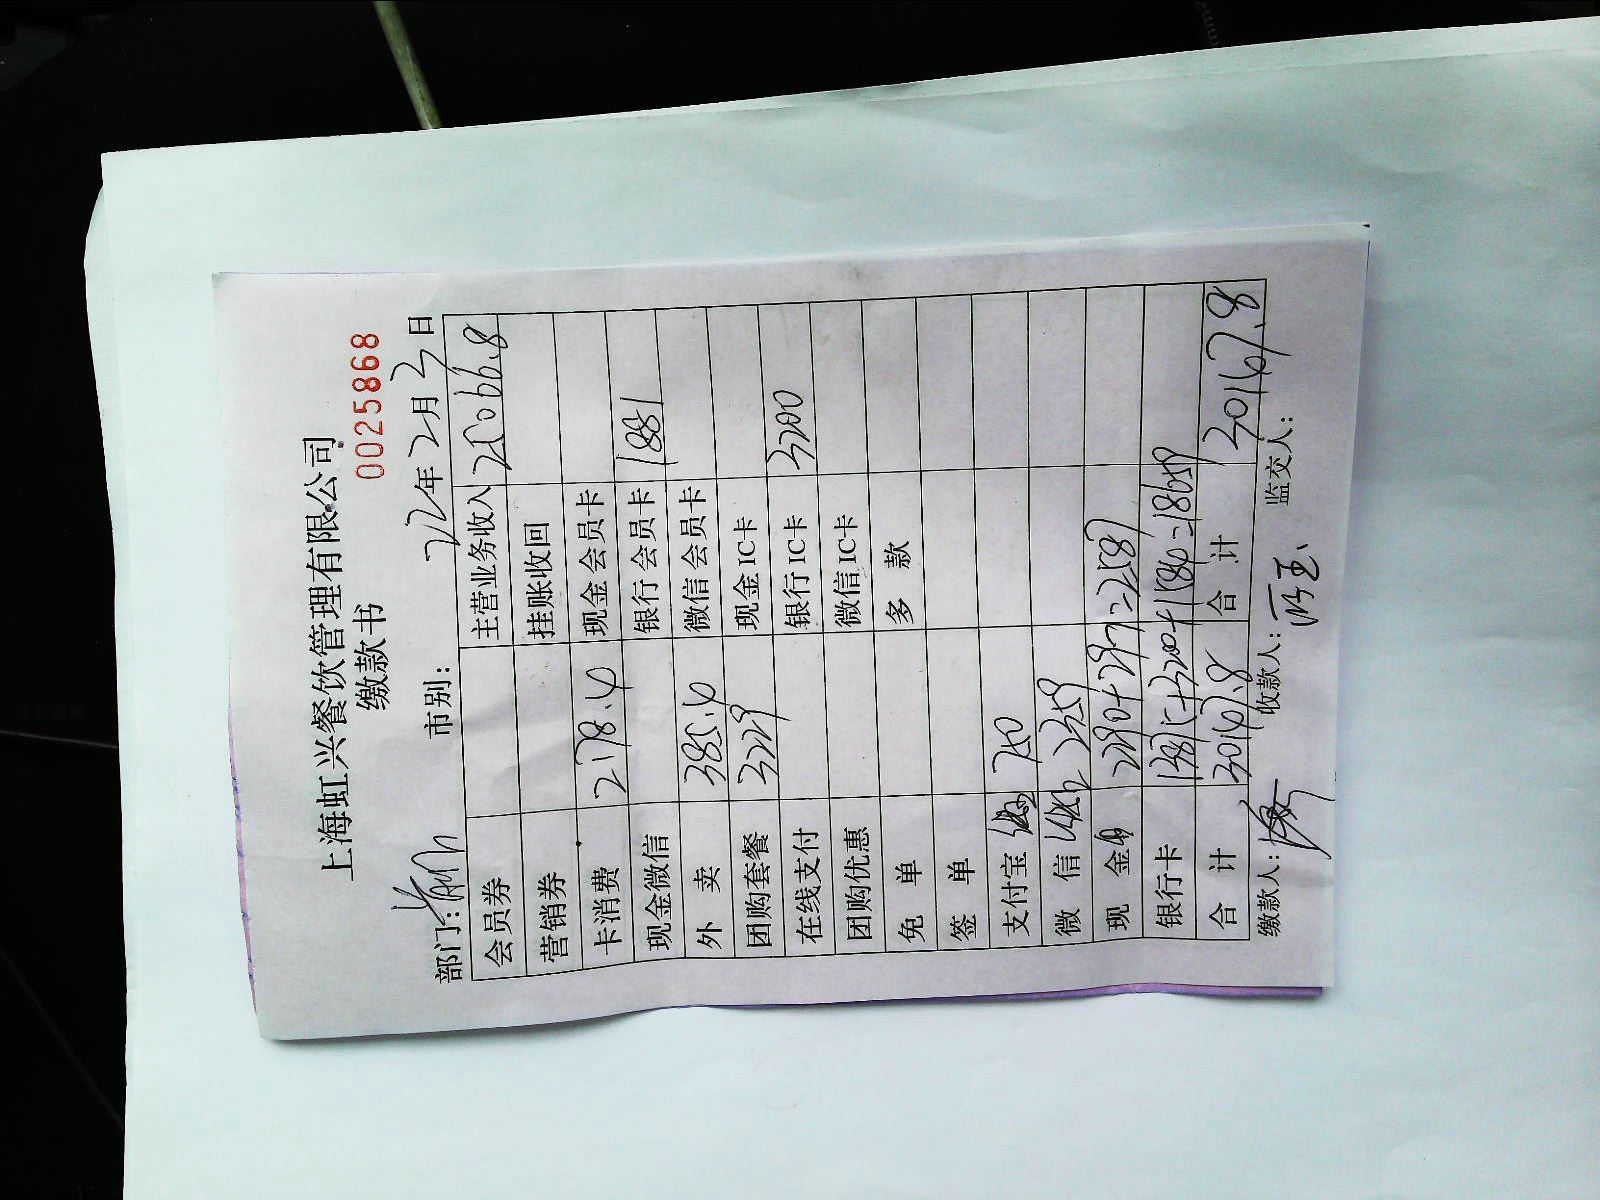 上海虹兴餐饮管理有限公司
缴款书 0025868
部门: 市别: 22年2月3日
会员券 主营业务收入 25066.8
营销券 挂账收回
卡消费 2178.4 现金会员卡
现金微信 银行会员卡 1881
外卖 385.4 微信会员卡
团购套餐 3229 现金IC卡
在线支付 银行IC卡 3200
团购优惠 微信IC卡
免单 多款
签单
支付宝 750
微信 2359
现金 2290+297=2587
银行卡 13875+3200+1584=18659
合计 30147.8 合计 30147.8
缴款人: 收款人: 监交人: